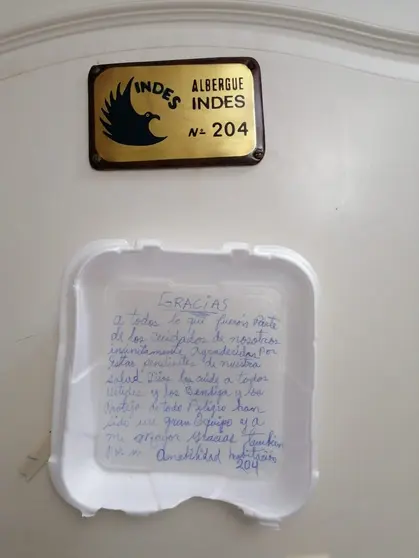 INDES
ALBERGUE
INDES
Nº 204
GRACIAS
a todos lo que fueron Parte
de los cuidados de nosotros
infinitamente Agradecidas por
estar pendientes de nuestra
salud Dios los cuide a todos
ustedes y los Bendiga y los
Proteja de todo Peligro han
sido un gran Equipo y a
mi Gracias tambien
Por su Amabilidad habitación
204